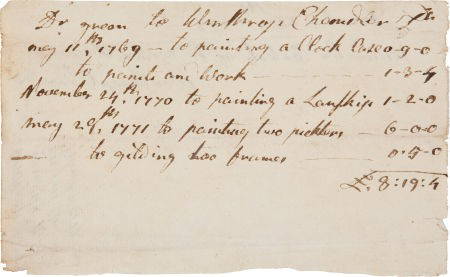 Dr green to Winthrop Chandler Dr.
may 11th, 1769 — to painting a Clock Case 0-9-0
to paints and work — 1-3-4
November 24th, 1770 to painting a Lanskip 1-2-0
may 29th, 1771 to painting two picktors — 6-0-0
— to gilding two frames — 0-5-0
£ 8:19:4